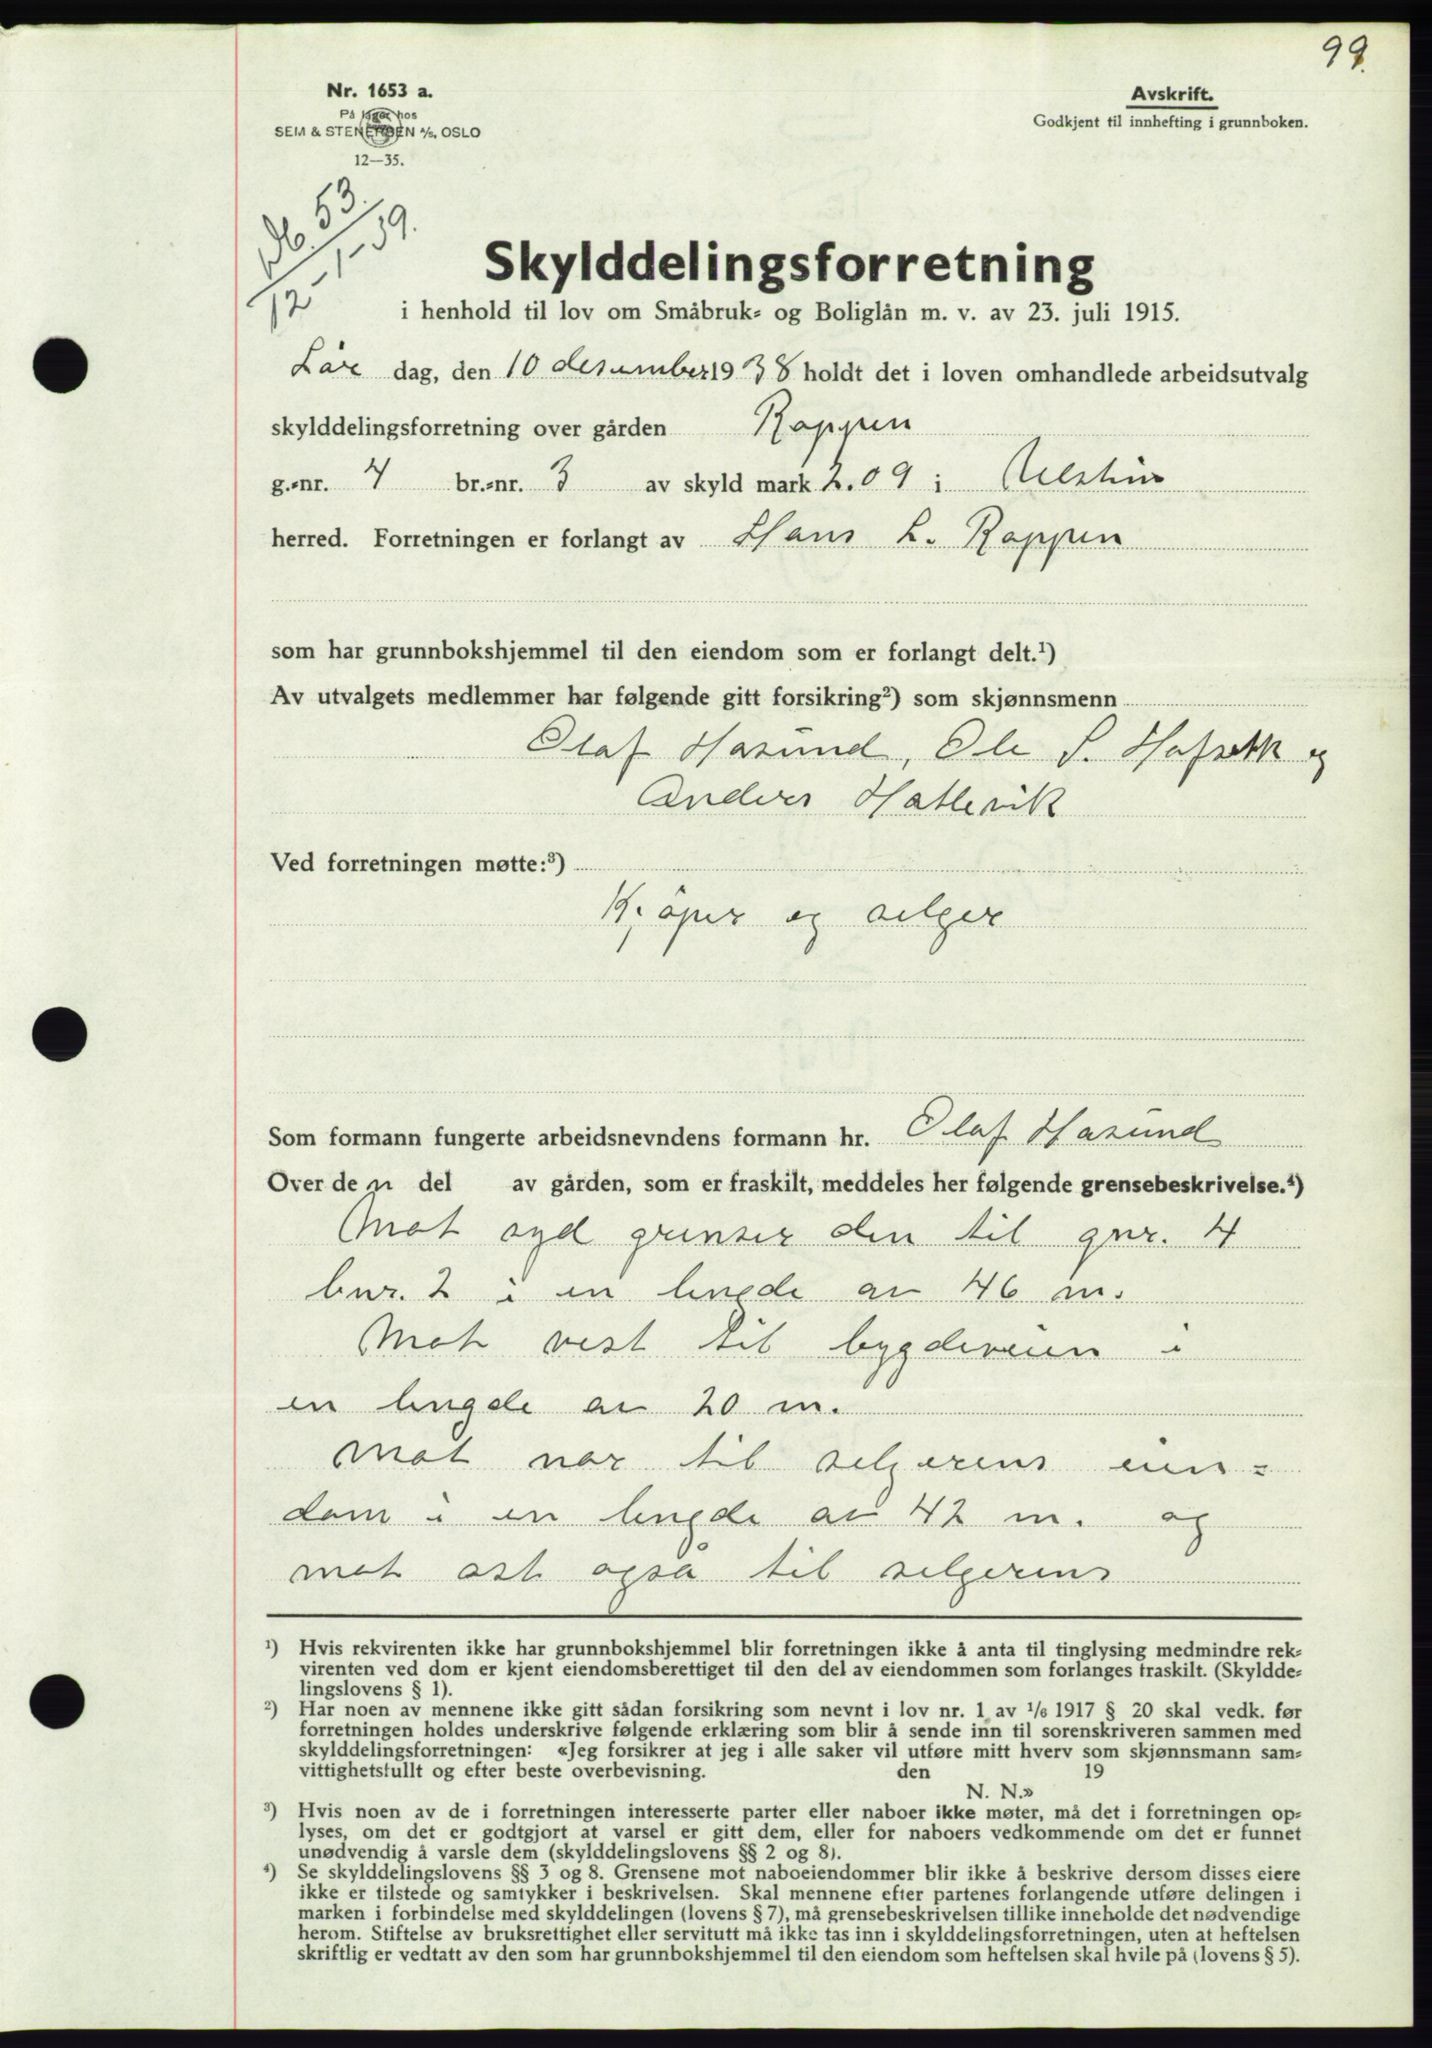 99.
Nr. 1653 a.
På lager hos
SEM & STENERSEN A/S, OSLO
12—35.
Avskrift.
Godkjent til innhefting i grunnboken.
53.
12-1-39.
Skylddelingsforretning
i henhold til lov om Småbruk- og Boliglån m. v. av 23. juli 1915.
Lör dag, den 10 desember 1938 holdt det i loven omhandlede arbeidsutvalg
skylddelingsforretning over gården Roppen
g.-nr. 4 br.-nr. 3 av skyld mark 2.09 i Ulstein
herred. Forretningen er forlangt av Hans L. Roppen
som har grunnbokshjemmel til den eiendom som er forlangt delt.¹)
Av utvalgets medlemmer har følgende gitt forsikring²) som skjønnsmenn
Olaf Hasund, Ole S. Hofseth og
Anders Hatlevik
Ved forretningen møtte:³)
Kjöper og selger
Som formann fungerte arbeidsnevndens formann hr. Olaf Hasund
Over den del av gården, som er fraskilt, meddeles her følgende grensebeskrivelse.⁴)
Mot syd grenser den til gnr. 4
bnr. 2 i en lengde av 46 m.
Mot vest til bygdeveien i
en lengde av 20 m.
Mot nor til selgerens eien=
dom i en lengde av 42 m. og
mot ost også til selgerens
¹) Hvis rekvirenten ikke har grunnbokshjemmel blir forretningen ikke å anta til tinglysing medmindre rek-
virenten ved dom er kjent eiendomsberettiget til den del av eiendommen som forlanges fraskilt. (Skyldde-
lingslovens § 1).
²) Har noen av mennene ikke gitt sådan forsikring som nevnt i lov nr. 1 av 1/6 1917 § 20 skal vedk. før
forretningen holdes underskrive følgende erklæring som blir å sende inn til sorenskriveren sammen med
skylddelingsforretningen: «Jeg forsikrer at jeg i alle saker vil utføre mitt hverv som skjønnsmann sam-
vittighetsfullt og efter beste overbevisning. den 19
N. N.»
³) Hvis noen av de i forretningen interesserte parter eller naboer ikke møter, må det i forretningen op-
lyses, om det er godtgjort at varsel er gitt dem, eller for naboers vedkommende om det er funnet
unødvendig å varsle dem (skylddelingslovens §§ 2 og 8).
⁴) Se skylddelingslovens §§ 3 og 8. Grensene mot naboeiendommer blir ikke å beskrive dersom disses eiere
ikke er tilstede og samtykker i beskrivelsen. Skal mennene efter partenes forlangende utføre delingen i
marken i forbindelse med skylddelingen (lovens § 7), må grensebeskrivelsen tillike inneholde det nødvendige
herom. Stiftelse av bruksrettighet eller servitutt må ikke tas inn i skylddelingsforretningen, uten at heftelsen
skriftlig er vedtatt av den som har grunnbokshjemmel til den eiendom som heftelsen skal hvile på (lovens § 5).